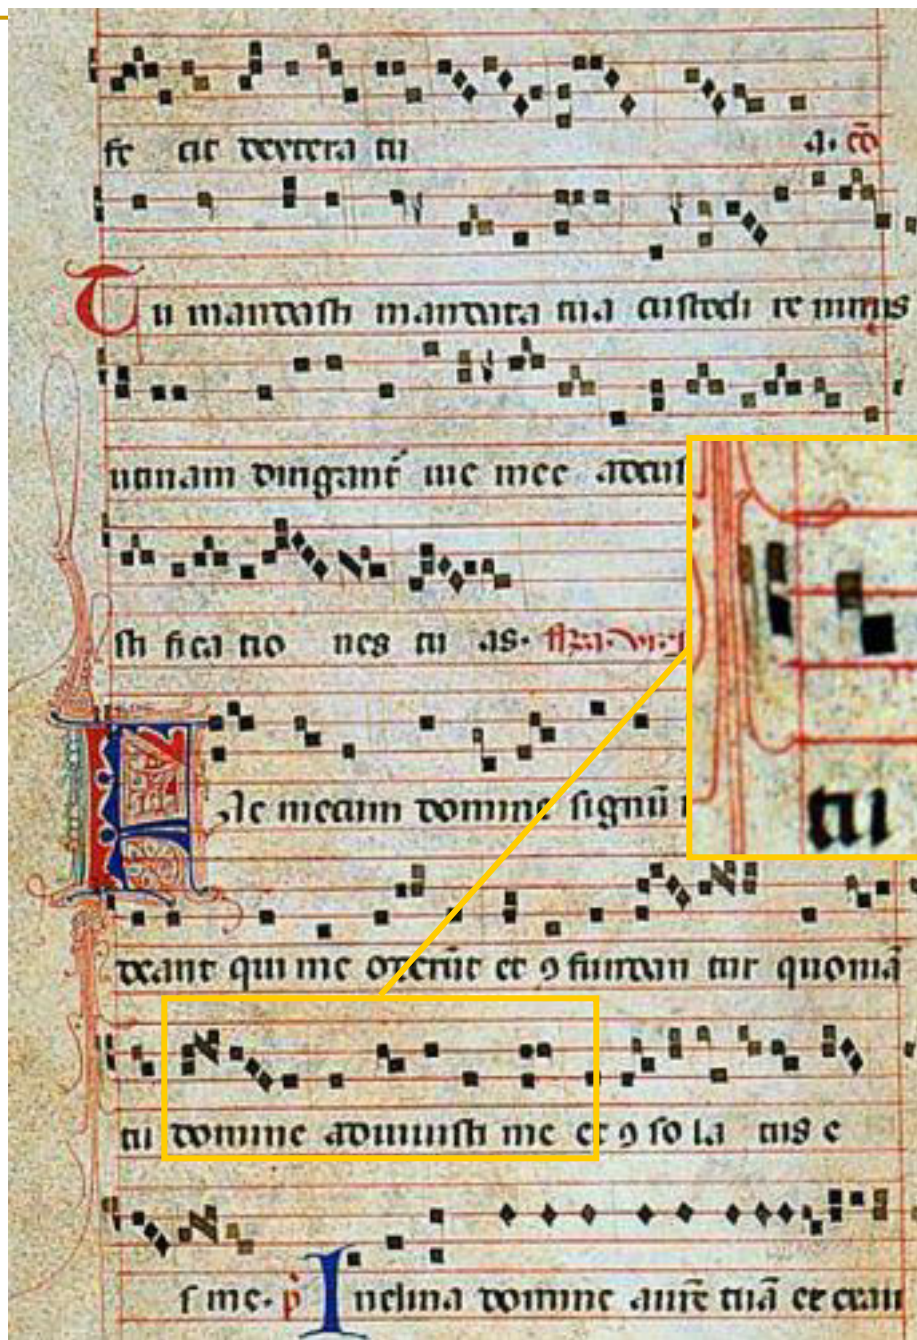 fe cit dextera tu a. cō
Tu mandasti mandata tua custodi re nimis
utinam dirigant᷑ uie mee adcus
ti
sti fica tio nes tu as. ffza. vi.
Fac mecum domine signū
deant qui me oderūt et ꝯ fundan tur quoniā
tu domine adiuuisti me et ꝯ so la tus e
s me. p̄ Inclina domine aurē tuā et exau